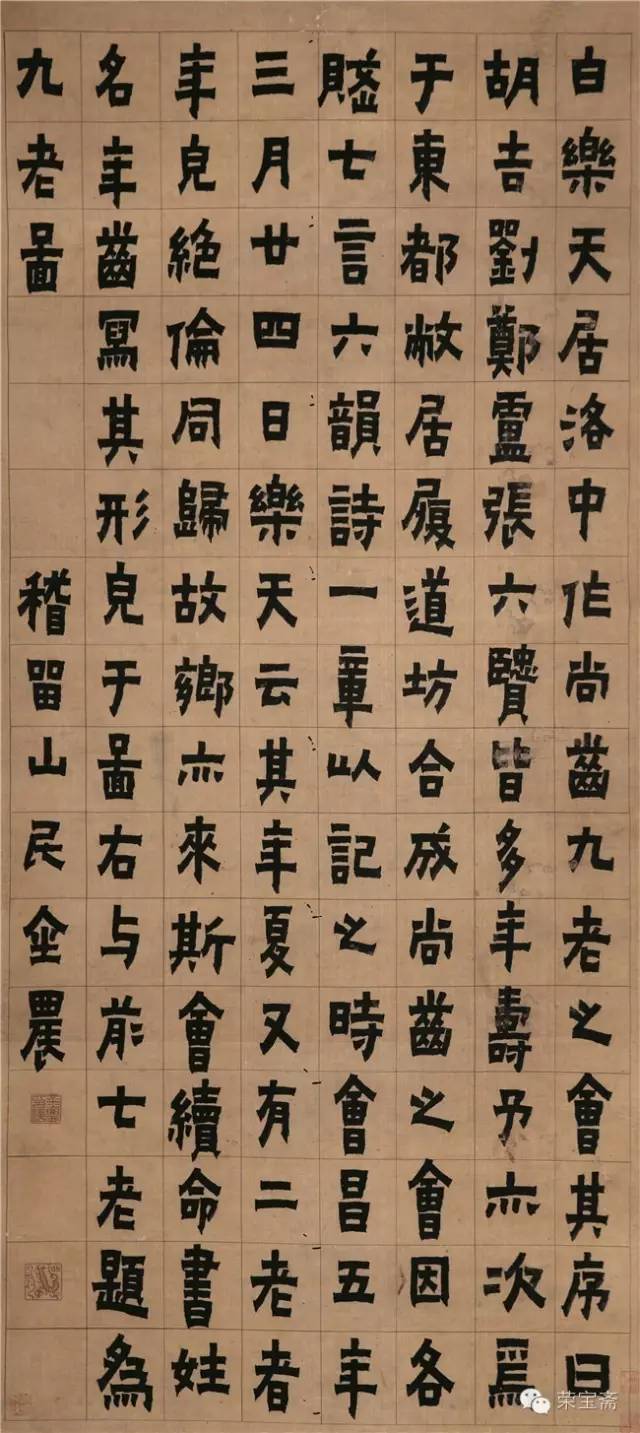 白樂天居洛中作尚齒九老之會其序曰
胡吉劉鄭盧張六賢皆多年壽予亦次焉
于東都敝居履道坊合成尚齒之會因各
賦七言六韻詩一章以記之時會昌五年
三月廿四日樂天云其年夏又有二老者
年皃絕倫同歸故鄉亦來斯會續命書姓
名年齒寫其形皃于圖右与前七老題為
九老圖
稽留山民金農
荣宝斋